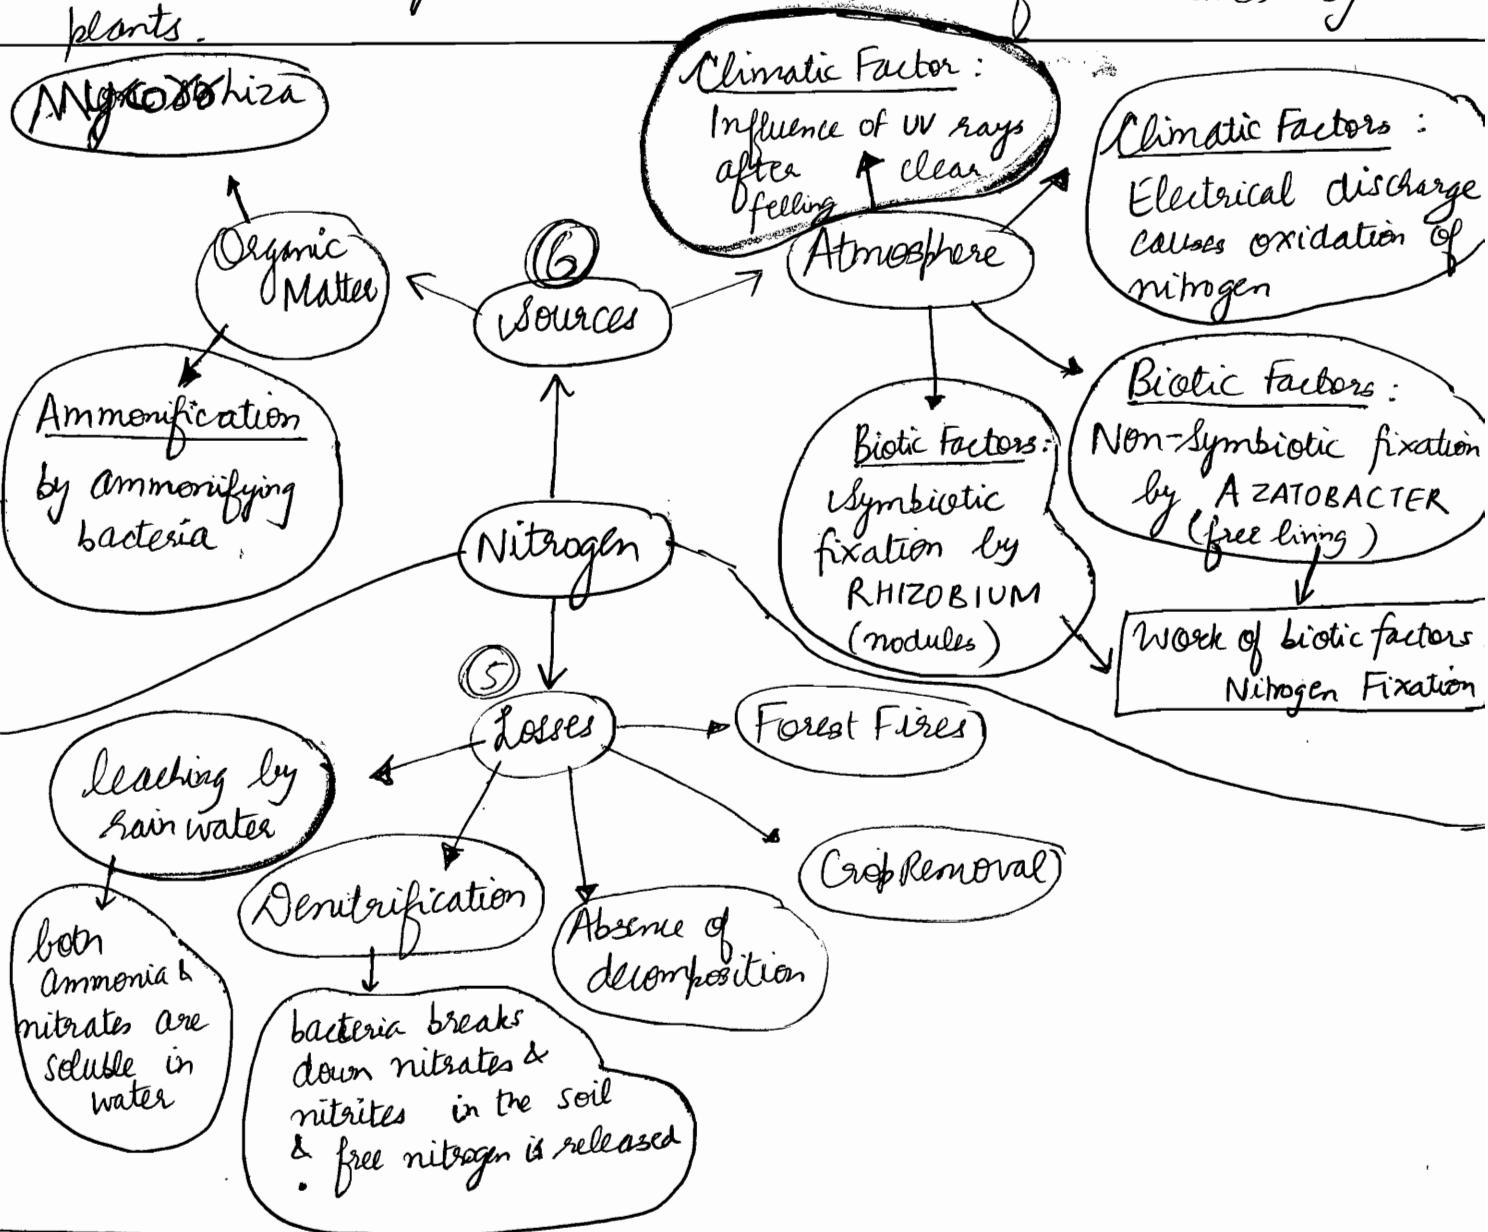 plants.
Mycorrhiza
Climatic Factor :
Influence of UV rays
after clear
felling
Climatic Factors :
Electrical discharge
causes oxidation of
nitrogen
Organic
Matter
6
Sources
Atmosphere
Ammonification
by ammonifying
bacteria
Biotic Factors :
Symbiotic
fixation by
RHIZOBIUM
(nodules)
Biotic Factors :
Non-Symbiotic fixation
by AZATOBACTER
(free living)
Nitrogen
Work of biotic factors
Nitrogen Fixation
5
Losses
Forest Fires
leaching by
rain water
Crop Removal
Denitrification
Absence of
decomposition
both
ammonia &
nitrates are
soluble in
water
bacteria breaks
down nitrates &
nitrites in the soil
& free nitrogen is released
.